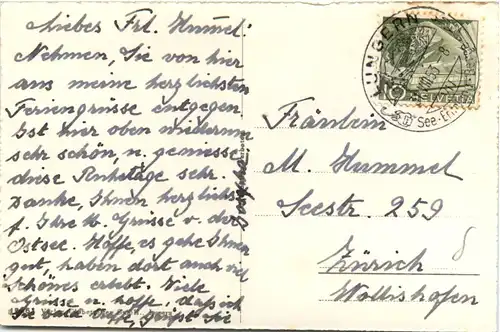 Liebes Frl. Hummel:
Nehmen Sie von hier
aus meine herzlichsten
Feriengrüsse entgegen
Ist hier oben wiederum
sehr schön, u. geniesse
diese Ruhetage sehr.
Danke, Ihnen herzlichst
f. Ihre lb. Grüsse v. der
Ostsee. Hoffe, es gehe Ihnen
gut, haben dort auch viel
schönes erlebt. Viele
Grüsse u. hoffe, dass ich
Sie bald treffe, grüsst Sie
LUNGERN
See
10
HELVETIA
Fräulein
M. Hummel
Seestr. 259
Zürich
Wollishofen